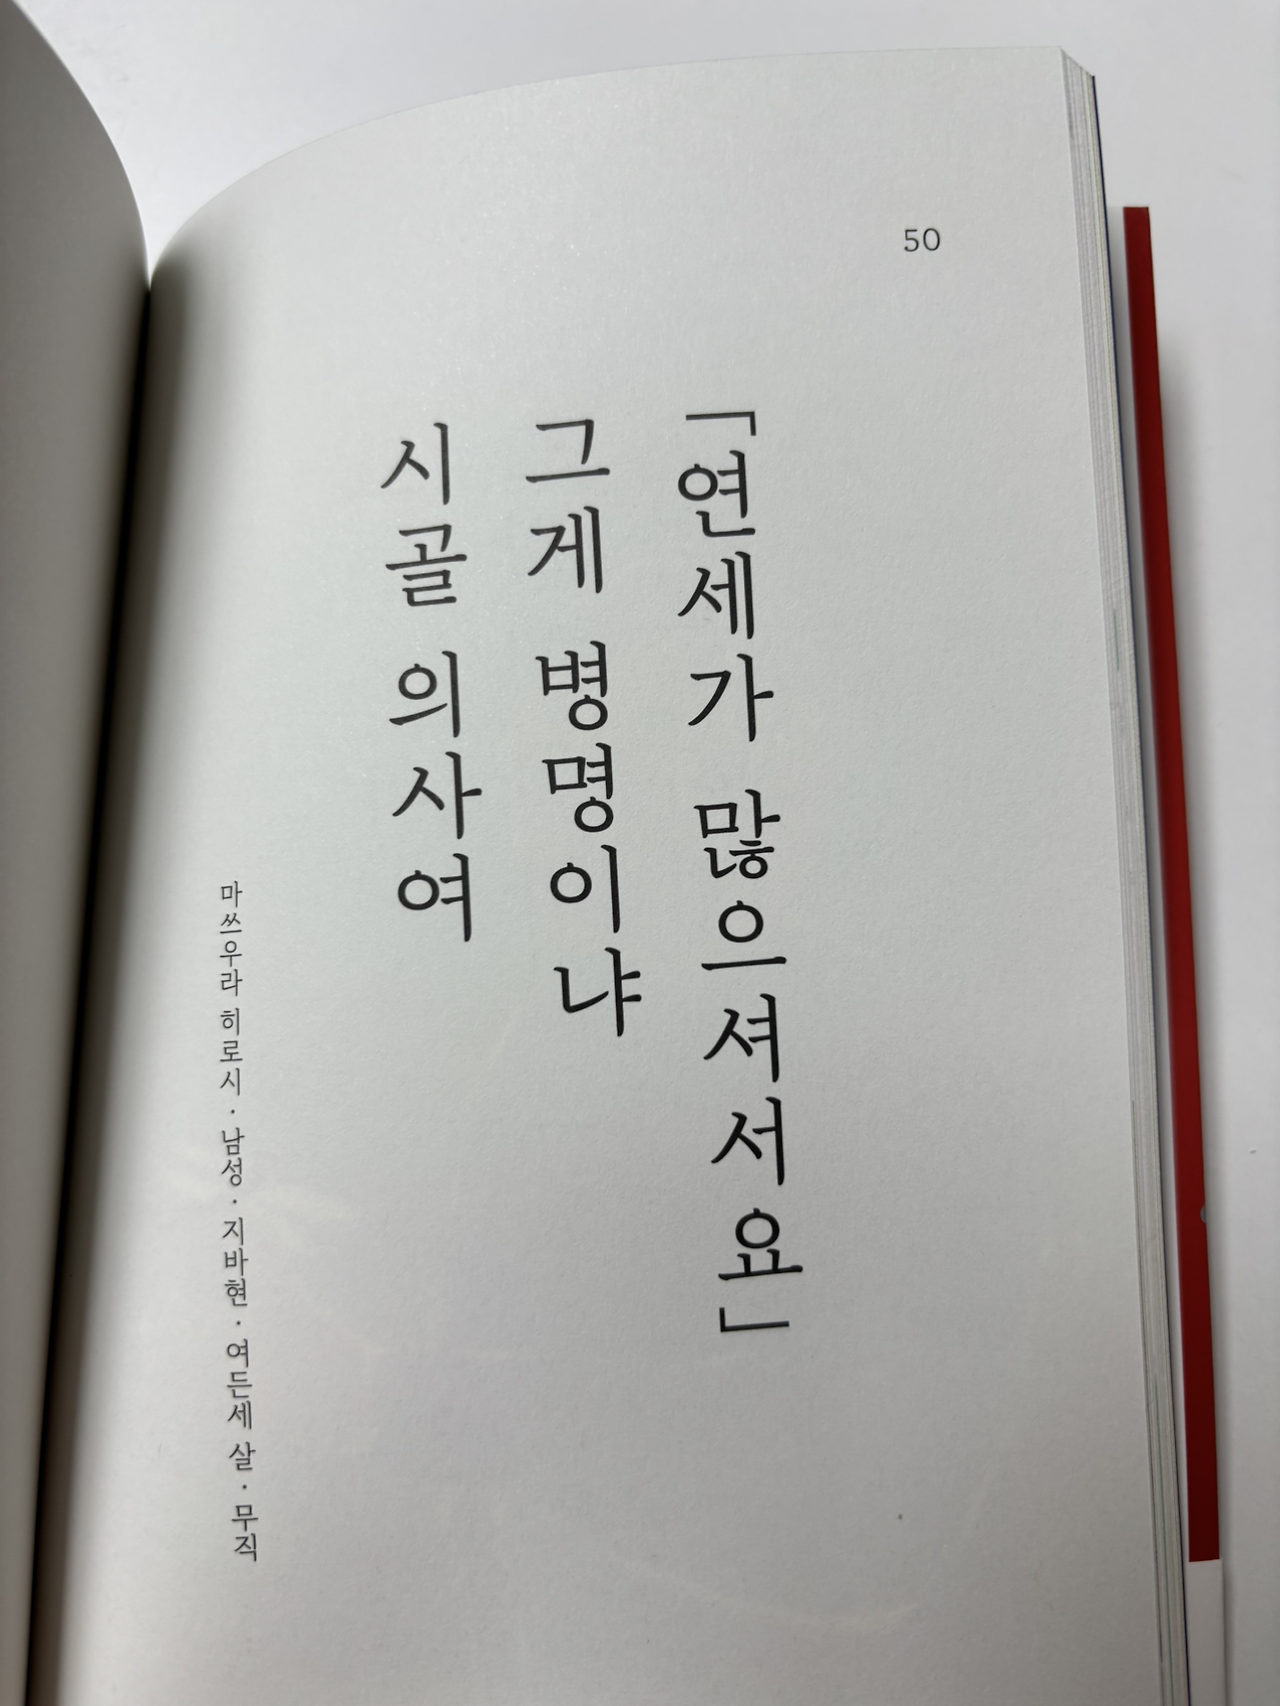 50
「연세가 많으셔서요」
그게 병명이냐
시골 의사여
마쓰우라 히로시·남성·지바현·여든세 살·무직